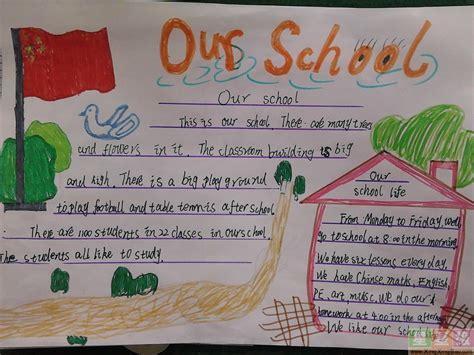 Our School
Our school
This is our school. There are many trees
and flowers in it. The classroom building is big
and high. There is a big play ground
to play football and table tennis after school
There are 1100 students in 22 classes in our school.
The students all like to study.
Our
school life
From Monday to Friday, we
go to school at 8:00 in the morning
We have six lessons every day.
We have Chinse maks, English,
PE, art, music, we do our
homework at 4:00 in the afternoon
We like our school